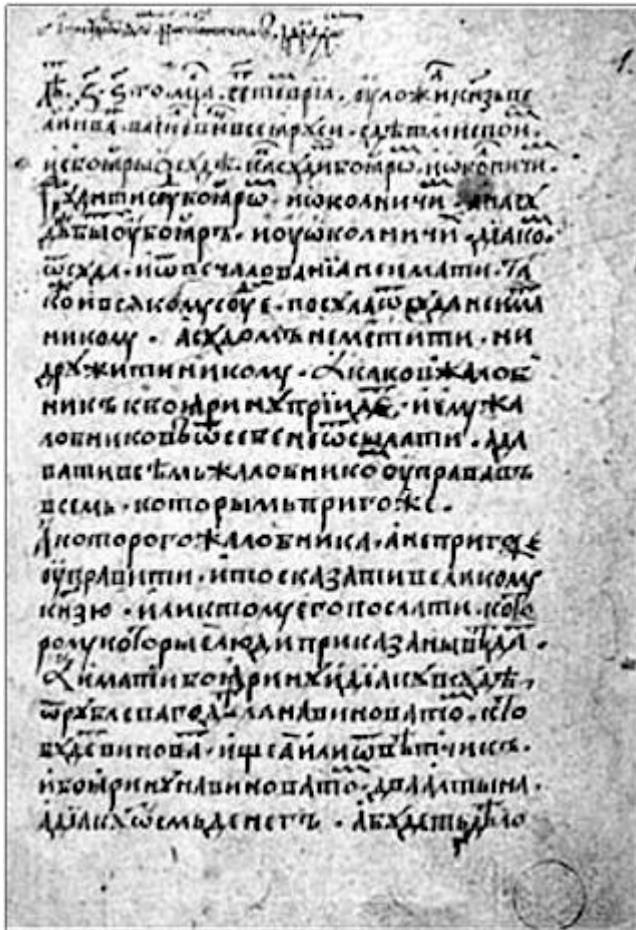 лѣ҃т ҂з҃ ѕ҃го мц҃а септеврїа оуложилъ кн҃зь ве
ликїи иванъ васильевич всеѧ рүси с дѣтми свои
ми и с боꙗры ѡ сүдѣ. как сүдити боꙗрѡм и ѡколничим.
Сүдити сүд боꙗрѡм и ѡколничим. а на сү
дѣ быти оу боꙗръ и оу ѡколничих дїако
ѿ сүда и ѿ печалованїа не имати. та
кож и всѧкому сүдье посүла ѿ сүда не имати
никому. а сүдом не мстити. ни
дрүжити никому. А каков жалоб
никъ к боꙗринү прїидет. и ему жа
лобниковъ ѿ себе не ѿсылати. а да
вати всѣмъ жалобником оуправа въ
всемь. которымь пригоже.
А которого жалобника. а непригоже
оуправити. и то сказати великому
кн҃зю. или к тому его послати. кото
рому которые люди приказаны вѣдати.
А имати боꙗринү и дїакү в сүдѣ
ѿ рүблеваго дѣла на виноватом. кто
бүдет виноват. ищеа или ѿвѣтчикъ.
и боꙗринү на виноватом два алтына.
а дїакү ѡсмь денегъ. а бүдеть дѣло